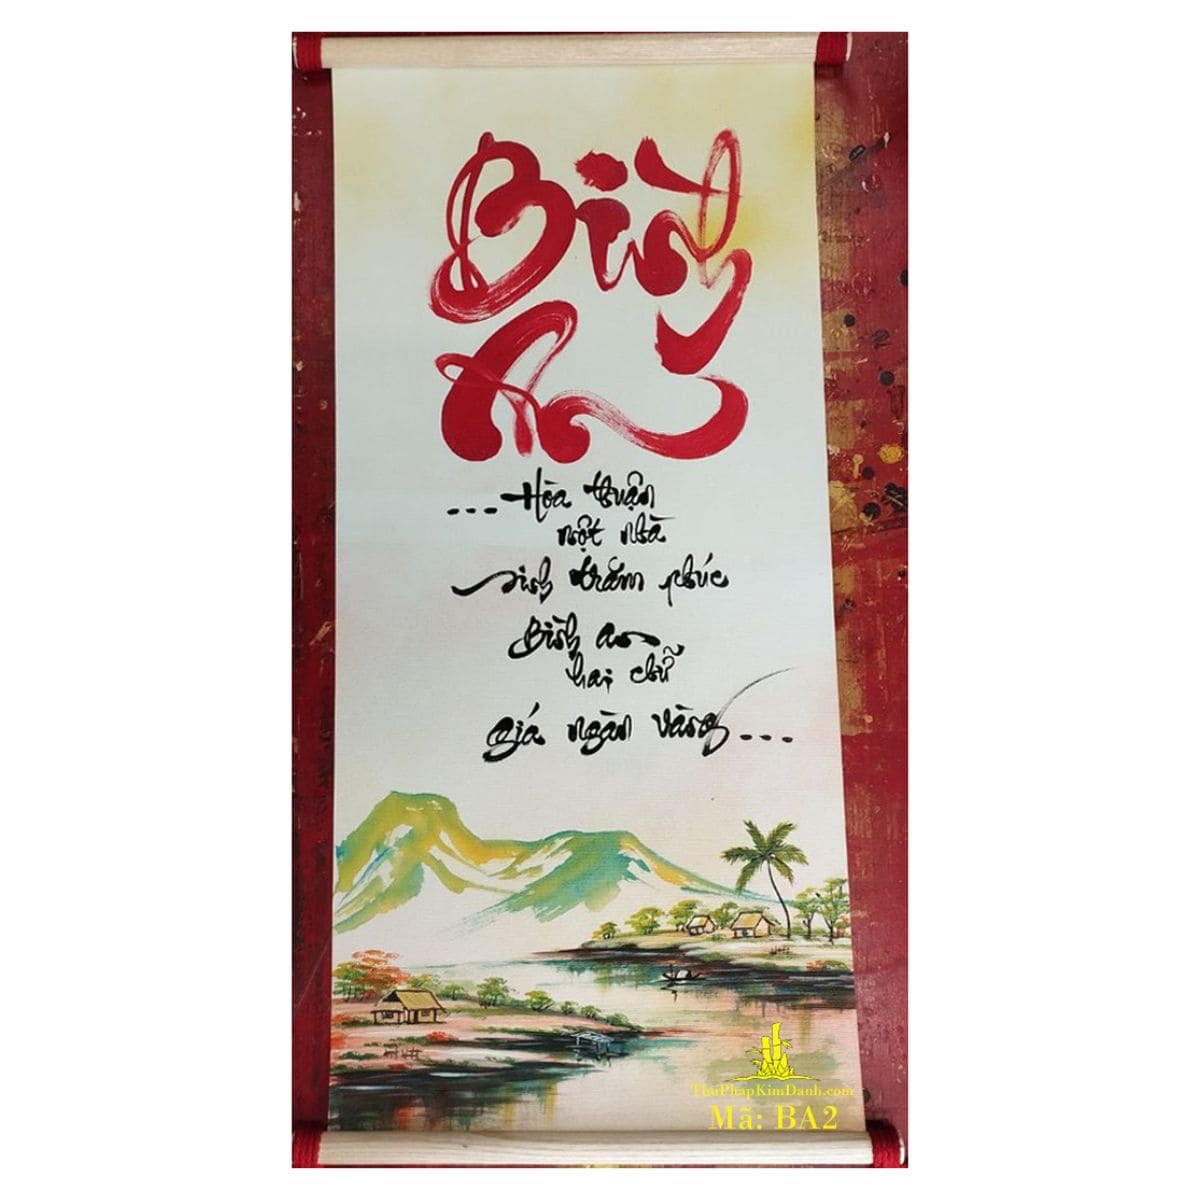 Bình
An
...Hòa thuận
một nhà
sinh trăm phúc
Bình an
hai chữ
giá ngàn vàng...
ThuPhapKimDanh.com
Mã: BA2